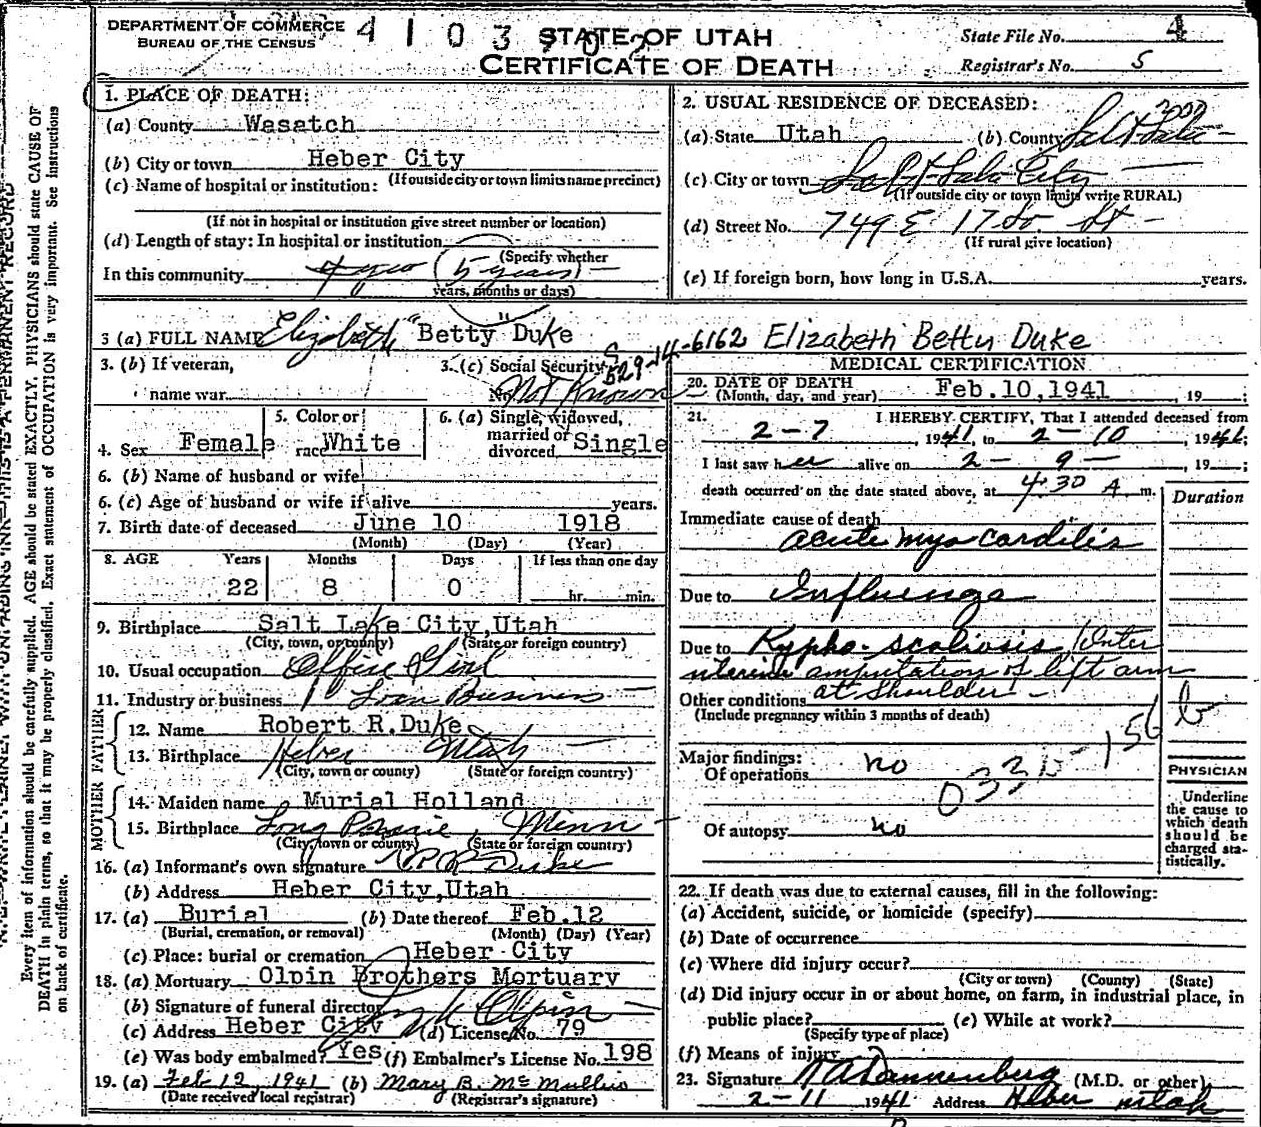 DEPARTMENT OF COMMERCE
BUREAU OF THE CENSUS
4 1 0 3
STATE OF UTAH
CERTIFICATE OF DEATH
State File No. 4
Registrar's No. 5
1. PLACE OF DEATH:
(a) County Wasatch
(b) City or town Heber City
(If outside city or town limits name precinct)
(c) Name of hospital or institution:
(If not in hospital or institution give street number or location)
(d) Length of stay: In hospital or institution
(Specify whether
In this community 4 yrs (5 years)
years, months or days)
2. USUAL RESIDENCE OF DECEASED:
(a) State Utah (b) County Salt Lake
(c) City or town Salt Lake City
(If outside city or town limits write RURAL)
(d) Street No. 749 E 17 So. St
(If rural give location)
(e) If foreign born, how long in U.S.A. years.
3 (a) FULL NAME Elizabeth "Betty" Duke
Elizabeth Betty Duke
3. (b) If veteran,
name war
3. (c) Social Security
No. Not Known
529-14-6162
4. Sex Female
5. Color or
race White
6. (a) Single, widowed,
married or
divorced Single
6. (b) Name of husband or wife
6. (c) Age of husband or wife if alive years.
7. Birth date of deceased June 10 1918
(Month) (Day) (Year)
8. AGE Years Months Days If less than one day
22 8 0 hr. min.
9. Birthplace Salt Lake City, Utah
(City, town, or county) (State or foreign country)
10. Usual occupation Office Girl
11. Industry or business Loan Business
FATHER
12. Name Robert R. Duke
13. Birthplace Heber Utah
(City, town or county) (State or foreign country)
MOTHER
14. Maiden name Murial Holland
15. Birthplace Long Prairie, Minn
(City, town or county) (State or foreign country)
16. (a) Informant's own signature R Duke
(b) Address Heber City, Utah
17. (a) Burial (b) Date thereof Feb. 12
(Burial, cremation, or removal) (Month) (Day) (Year)
(c) Place: burial or cremation Heber City
18. (a) Mortuary Olpin Brothers Mortuary
(b) Signature of funeral director Olpin
(c) Address Heber City (d) License No. 79
(e) Was body embalmed? Yes (f) Embalmer's License No. 198
19. (a) Feb 12, 1941 (b) Mary B. McMullin
(Date received local registrar) (Registrar's signature)
MEDICAL CERTIFICATION
20. DATE OF DEATH
(Month, day, and year) Feb. 10, 1941, 19 ;
21. I HEREBY CERTIFY, That I attended deceased from
2-7, 1941, to 2-10, 1941;
I last saw her alive on 2-9-, 19 ;
death occurred on the date stated above, at 4:30 A m.
Duration
Immediate cause of death
acute myocarditis
Due to Influenza
Due to Kypho-scoliosis
amputation of left arm
at shoulder
Other conditions
(Include pregnancy within 3 months of death)
156 b
Major findings:
Of operations no
Of autopsy no
PHYSICIAN
Underline
the cause to
which death
should be
charged sta-
tistically.
22. If death was due to external causes, fill in the following:
(a) Accident, suicide, or homicide (specify)
(b) Date of occurrence
(c) Where did injury occur?
(City or town) (County) (State)
(d) Did injury occur in or about home, on farm, in industrial place, in
public place? (e) While at work?
(Specify type of place)
(f) Means of injury
23. Signature Dannenberg (M.D. or other)
2-11 1941 Address Heber Utah
Every item of information should be carefully supplied. AGE should be stated EXACTLY. PHYSICIANS should state CAUSE OF
DEATH in plain terms, so that it may be properly classified. Exact statement of OCCUPATION is very important. See instructions
on back of certificate.